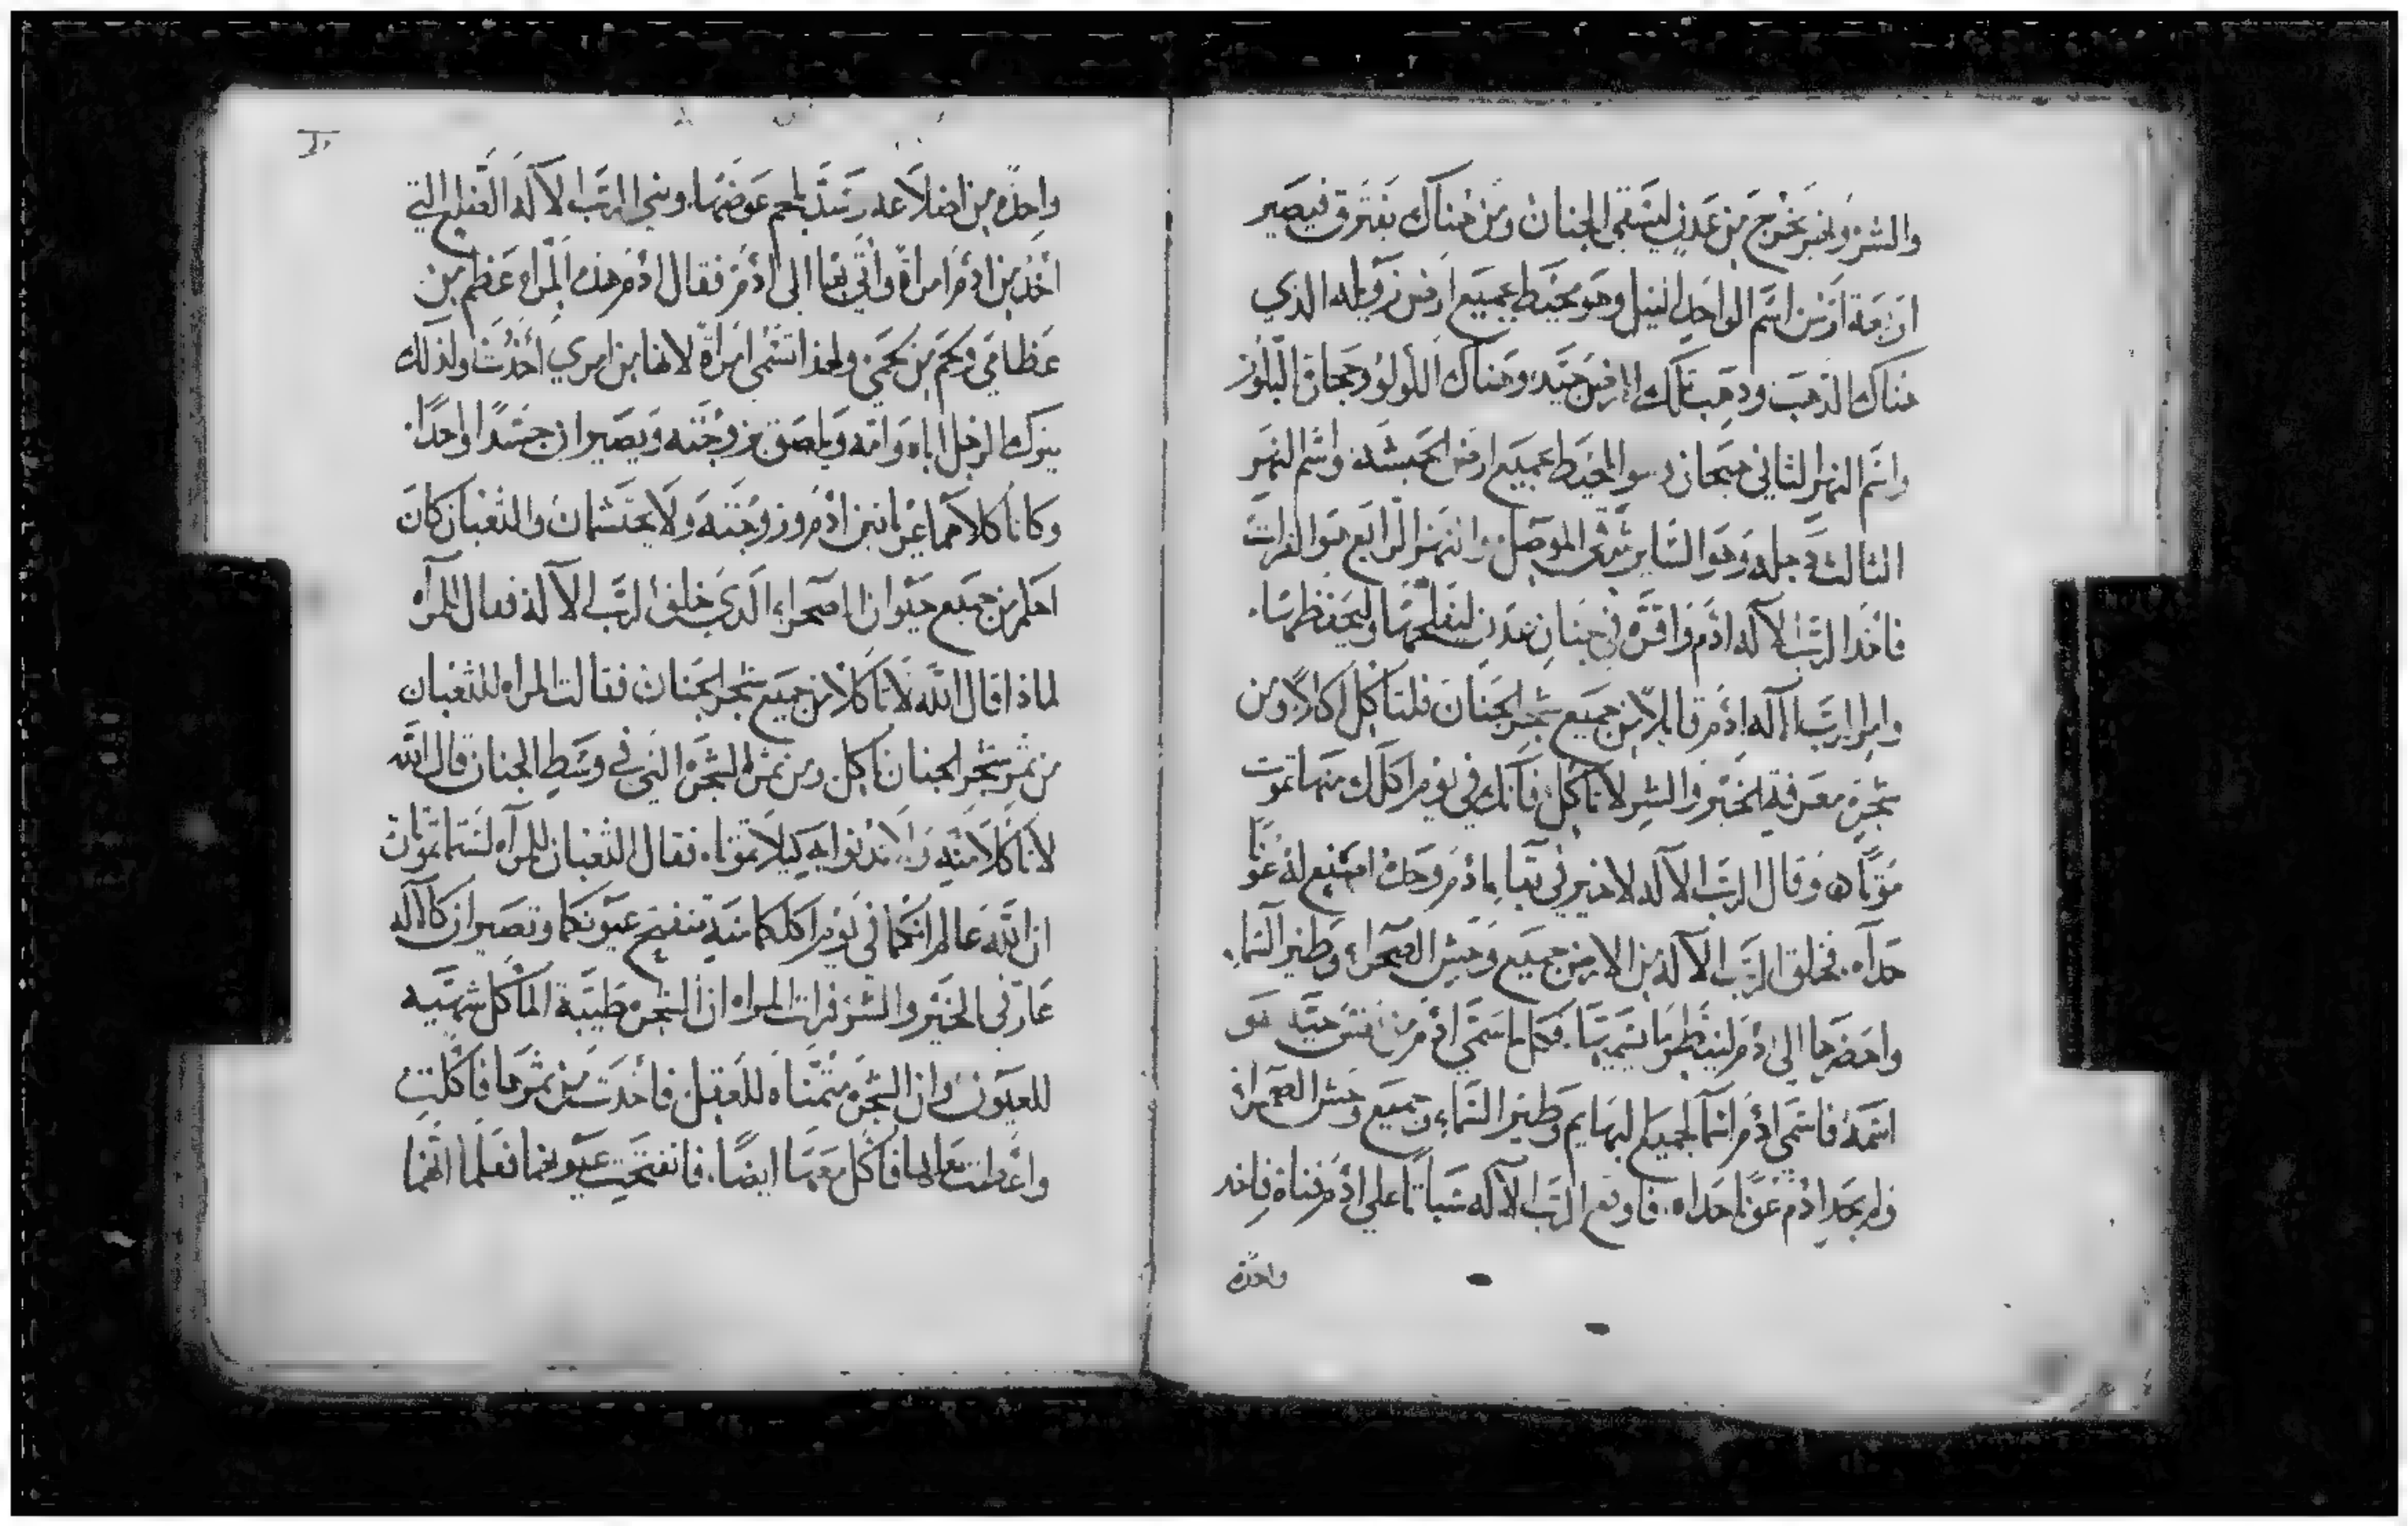 والشر ونهر يخرج من عدن ليسقي الجنان ومن هناك يفترق فيصير
اربعة ارؤس اسم الواحد النيل وهو محيط بجميع ارض زويله الذي
هناك الذهب وذهب تلك الارض جيد وهناك اللولو وحجارة البلور
واسم النهر الثاني جيحان وهو المحيط بجميع ارض الحبشة واسم النهر
الثالث دجله وهو الساير شرقي الموصل والنهر الرابع هو الفرات
فاخذ الرب الاله ادم واقره في جنان عدن ليفلحها وليحفظها
وامر الرب الاله ادم قايلا من جميع شجر الجنان فلتاكل اكلا ومن
شجرة معرفة الخير والشر لا تاكل فانك في يوم اكلك منها تموت
موتا وقال الرب الاله لا خير في بقا ادم وحده اصنع له عونا
حداه فخلق الرب الاله من الارض جميع وحش الصحراء وطير السماء
واحضرها الي ادم لينظر ما يسميها فكل ما سمي ادم من نفس حيه هو
اسمه فاسمي ادم اسما لجميع البهايم وطير السماء وجميع وحش الصحراء
ولم يجد ادم عونا حداه فاوقع الرب الاله سباتا علي ادم فنام فاخد
واحدة
واحدة من اضلاعه وسد بلحم عوضها وبني الرب الاله الضلع التي
اخذ من ادم امراة واتي بها الي ادم فقال ادم هذه المراه عظم من
عظامي ولحم من لحمي ولهذا تسمي امراة لانها من امري اخذت ولذلك
يترك الرجل اباه وامه ويلصق بزوجته ويصيران جسدا واحدا
وكانا كلاهما عريانين ادم وزوجته ولا يحتشمان والثعبان كان
احكم من جميع حيوان الصحراء الذي خلق الرب الاله فقال للمراه
لماذا قال الله لا تاكلا من جميع شجر الجنان فقالت المراه للثعبان
من ثمر شجر الجنان ناكل ومن ثمرة الشجرة التي في وسط الجنان قال الله
لا تاكلا منه ولا تدنوا به كيلا تموتا فقال الثعبان للمراه لستما تموتان
ان الله عالم انكما في يوم اكلكما منه تنفتح عيونكما وتصيران كالاله
عارفي الخير والشر فرات المراه ان الشجرة طيبة الماكل شهيه
للعيون وان الشجرة متمناه للعقل فاخدت من ثمرها فاكلت
واعطت بعلها فاكل معها ايضا فانفتحت عيونهما فعلما انهما